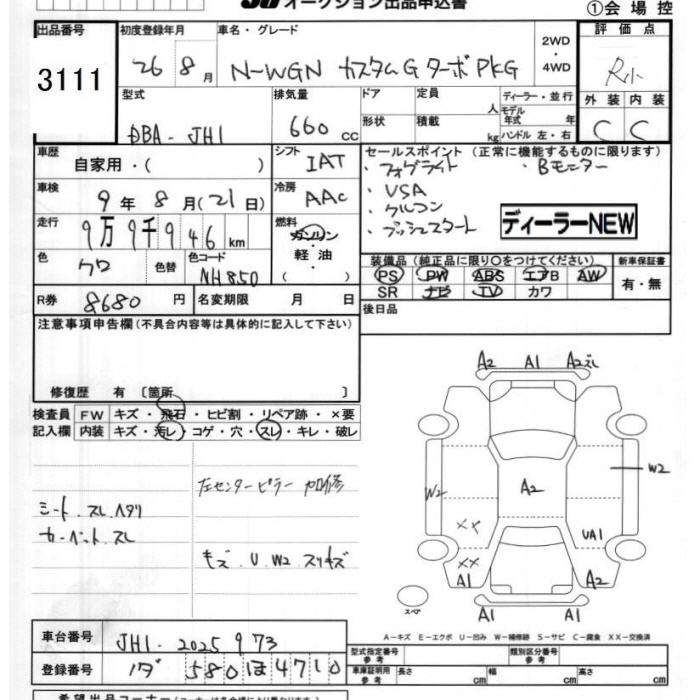 オークション出品申込書
①会場控
出品番号 初度登録年月 車名・グレード 2WD・4WD 評価点
3111 26 8月 N-WGN カスタムG ターボPKG R小
型式 排気量 ドア 定員 ディーラー・並行 外装 内装
DBA-JH1 660cc 形状 積載 人 kg モデル年式 年 ハンドル 左・右 C C
車歴 自家用・( ) シフト IAT セールスポイント(正常に機能するものに限ります)
・フォグライト ・Bモニター
車検 9年8月(21日) 冷房 AAC ・VSA
・クルコン
・プッシュスタート ディーラーNEW
走行 9万9千946km 燃料 ガソリン・軽油・( )
色 クロ 色替 色コード NH850 装備品(純正品に限り○をつけてください) 新車保証書
PS PW ABS エアB AW 有・無
SR ナビ TV カワ
R券 8680円 名変期限 月 日 後日品
注意事項申告欄(不具合内容等は具体的に記入して下さい)
修復歴 有〔箇所 〕
検査員記入欄 FW キズ・飛石・ヒビ割・リペア跡・×要
内装 キズ・汚レ・コゲ・穴・スレ・キレ・破レ
左センターピラー 加修
シート.スレ ヘタリ
カーペット.スレ
キズ.U.W2.スリキズ
A2 A1 A2ズレ
W2 A2 W2
XX UA1
XX
A1 A2
スペア A1 A1
A-キズ E-エクボ U-凹み W-補修跡 S-サビ C-腐食 XX-交換済
車台番号 JH1-2025973
型式指定番号 参考 類別区分番号 参考
登録番号 580 ほ 4710
車庫証明用 参考 長さ cm 幅 cm 高さ cm
希望出品コーナー